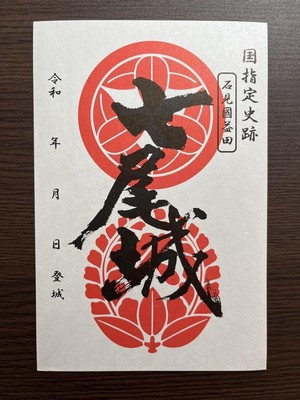 国指定史跡
石見國益田
七尾城
令和 年 月 日 登城